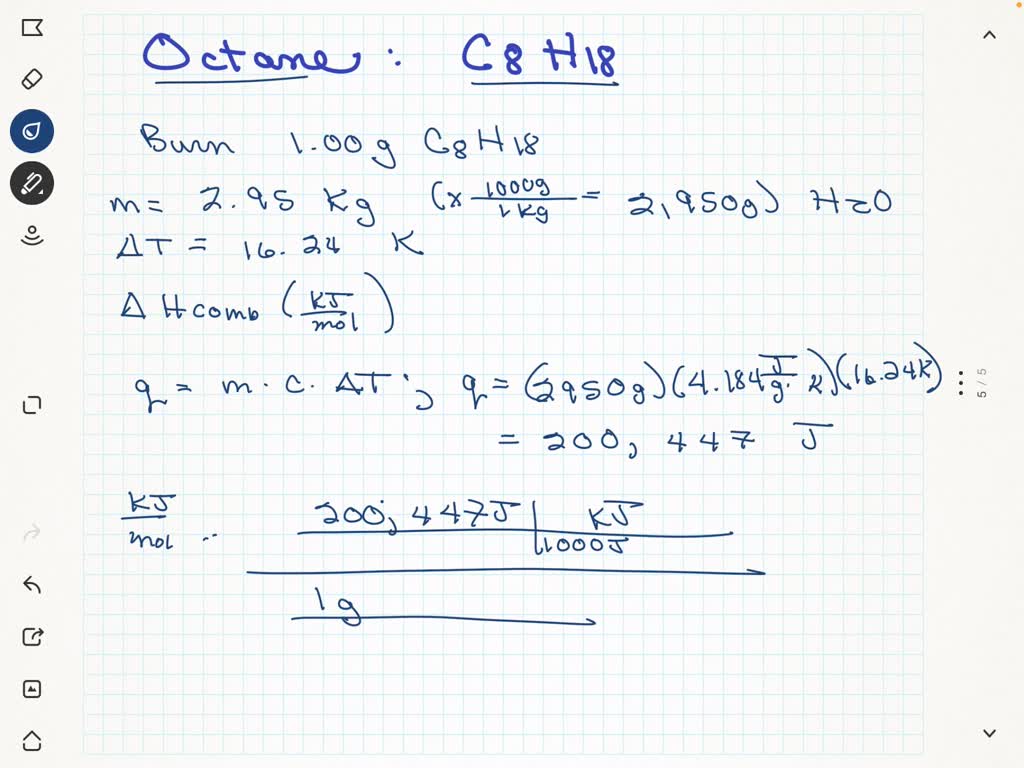 Octane : C8H18
Burn 1.00g C8H18
m= 2.95 Kg (x 1000g/1Kg = 2,950g) H2O
ΔT = 16.24 K
ΔHcomb (KJ/mol)
q = m·c·ΔT ; q = (2950g)(4.184 J/g·K)(16.24K)
= 200,447 J
KJ/mol : 200,447J | KJ
1000J
1g
5 / 5